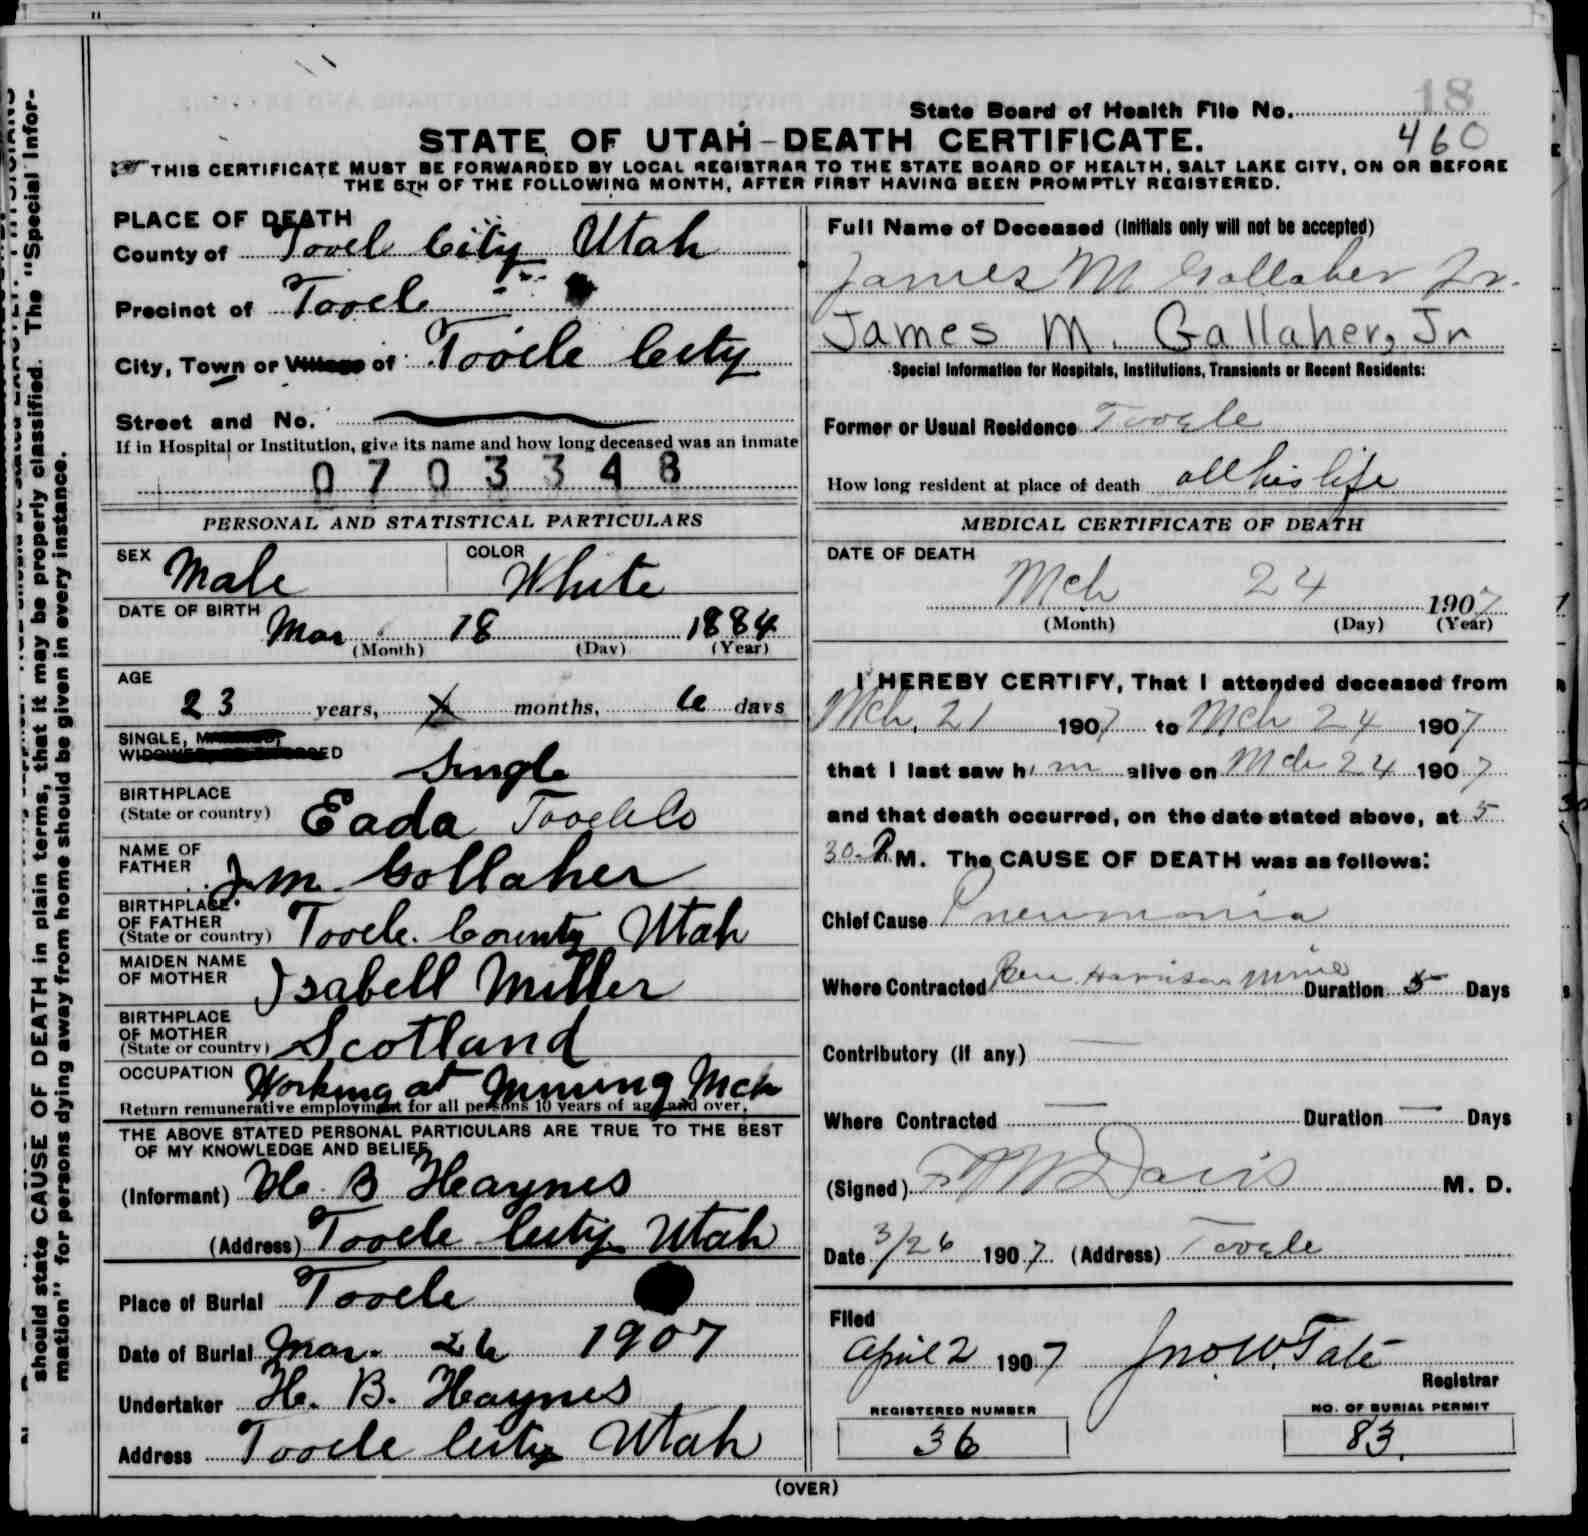 18
State Board of Health File No.
460
STATE OF UTAH - DEATH CERTIFICATE.
THIS CERTIFICATE MUST BE FORWARDED BY LOCAL REGISTRAR TO THE STATE BOARD OF HEALTH, SALT LAKE CITY, ON OR BEFORE
THE 5TH OF THE FOLLOWING MONTH, AFTER FIRST HAVING BEEN PROMPTLY REGISTERED.
should state CAUSE OF DEATH in plain terms, that it may be properly classified. The "Special Infor-
mation" for persons dying away from home should be given in every instance.
PLACE OF DEATH
County of Tooel City Utah
Precinct of Tooele
City, Town or Village of Tooele City
Street and No.
If in Hospital or Institution, give its name and how long deceased was an inmate
0703348
PERSONAL AND STATISTICAL PARTICULARS
SEX Male COLOR White
DATE OF BIRTH Mar 18 1884
(Month) (Day) (Year)
AGE
23 years, x months, 6 days
SINGLE,
WIDOWED
Single
BIRTHPLACE
(State or country) Eada Tooele Co
NAME OF
FATHER J. M. Gollaher
BIRTHPLACE
OF FATHER
(State or country) Tooele County Utah
MAIDEN NAME
OF MOTHER Isabell Miller
BIRTHPLACE
OF MOTHER
(State or country) Scotland
OCCUPATION Working at Mining Mch
Return remunerative employment for all persons 10 years of age and over.
THE ABOVE STATED PERSONAL PARTICULARS ARE TRUE TO THE BEST
OF MY KNOWLEDGE AND BELIEF
(Informant) H. B Haynes
(Address) Tooele City Utah
Place of Burial Tooele
Date of Burial Mar. 26 1907
Undertaker H. B. Haynes
Address Tooele City Utah
Full Name of Deceased (Initials only will not be accepted)
James M Gollaher Jr.
James M. Gallaher, Jr
Special Information for Hospitals, Institutions, Transients or Recent Residents:
Former or Usual Residence Tooele
How long resident at place of death all his life
MEDICAL CERTIFICATE OF DEATH
DATE OF DEATH
Mch 24 1907
(Month) (Day) (Year)
I HEREBY CERTIFY, That I attended deceased from
Mch. 21 1907 to Mch 24 1907
that I last saw him alive on Mch 24 1907
and that death occurred, on the date stated above, at 5
30 P.M. The CAUSE OF DEATH was as follows:
Chief Cause Pneumonia
Where Contracted Ben Harrison Mine Duration 5 Days
Contributory (if any)
Where Contracted Duration Days
(Signed) Davis M. D.
Date 3/26 1907 (Address) Tooele
Filed
April 2 1907 Jno. W. Tate
Registrar
REGISTERED NUMBER
36
NO. OF BURIAL PERMIT
83.
(OVER)